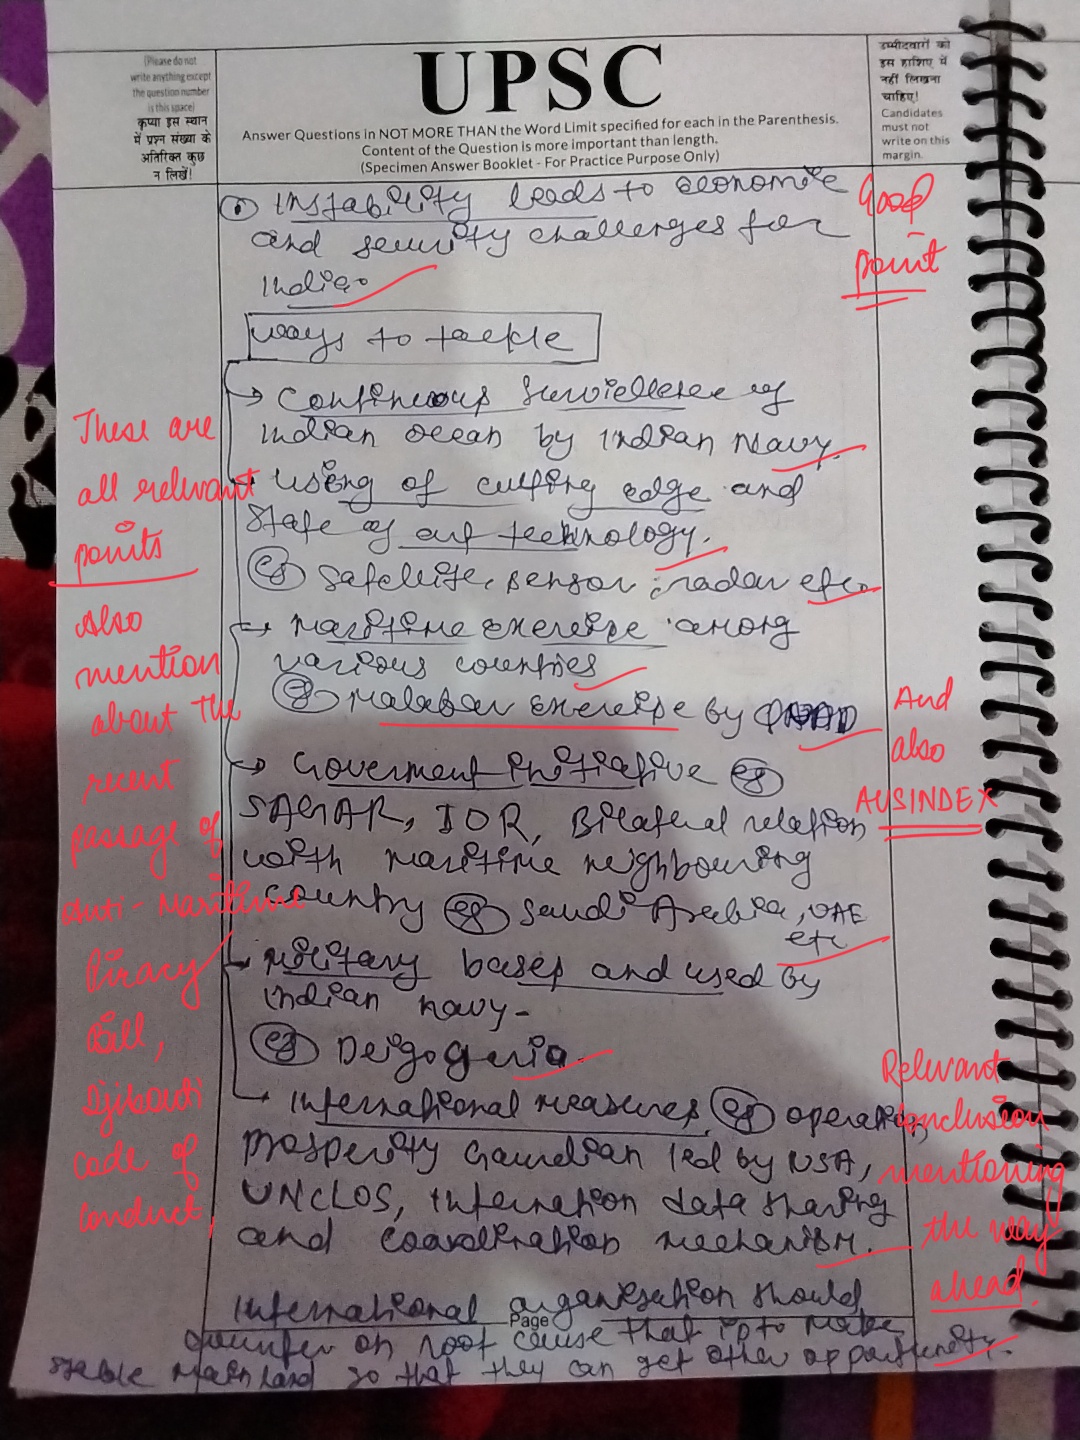 (Please do not
write anything except
the question number
in this space)
कृप्या इस स्थान
में प्रश्न संख्या के
अतिरिक्त कुछ
न लिखें!
UPSC
Answer Questions in NOT MORE THAN the Word Limit specified for each in the Parenthesis.
Content of the Question is more important than length.
(Specimen Answer Booklet - For Practice Purpose Only)
उम्मीदवारों को
इस हाशिए में
नहीं लिखना
चाहिए!
Candidates
must not
write on this
margin.
Instability leads to economic
and security challenges for
India.
Good
point
ways to tackle
→ Continuous Surviellence of
Indian ocean by Indian Navy.
→ Using of cutting edge and
State of art technology.
eg Satellite, sensor, radar etc.
→ Maritime exercise among
various counties
eg Malabar exercise by QUAD
→ Goverment initiative eg
SAGAR, IOR, Bilateral relation
with maritime neighbouring
country eg Saudi Arabia, UAE
etc
→ Military bases and used by
Indian navy-
eg Deigo Garia.
→ International measures eg operation
Prosperity Gaurdian led by USA,
UNCLOS, Internation data sharing
and coordination mechanism.
International organisation should
on root cause that is to make
stable mainland so that they can get other opportunity.
Page
These are
all relevant
points
Also
mention
about the
recent
passage of
Anti-Maritime
Piracy
Bill,
Djibouti
code of
conduct,
And
also
AUSINDEX
Relevant
conclusion
mentioning
the way
ahead.